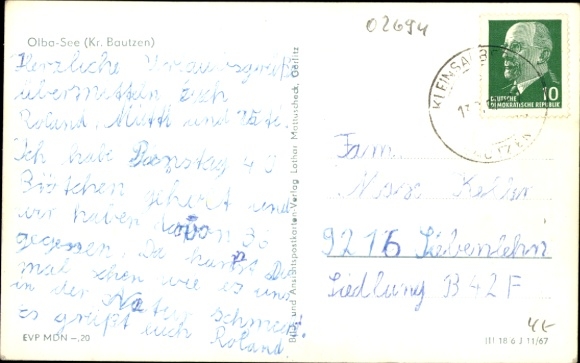 02694
Olba-See (Kr. Bautzen)
Herzliche Urlaubsgrüße
übermitteln Euch
Roland, Mutti und Vati.
Ich habe Dienstag 40
Brötchen geholt und
wir haben davon 36
gegessen. Da kannst Du
mal sehen wie es uns
in der Natur schmeckt
Es grüßt euch Roland
EVP MDN –,20
Bild und Ansichtspostkarten-Verlag Lothar Mattuscheck, Görlitz
10
DEUTSCHE
DEMOKRATISCHE REPUBLIK
KLEINSAUBERNITZ
Fam.
Keller
9216 Siebenlehn
Siedlung B 42 F
III 18 6 J 11/67
4€